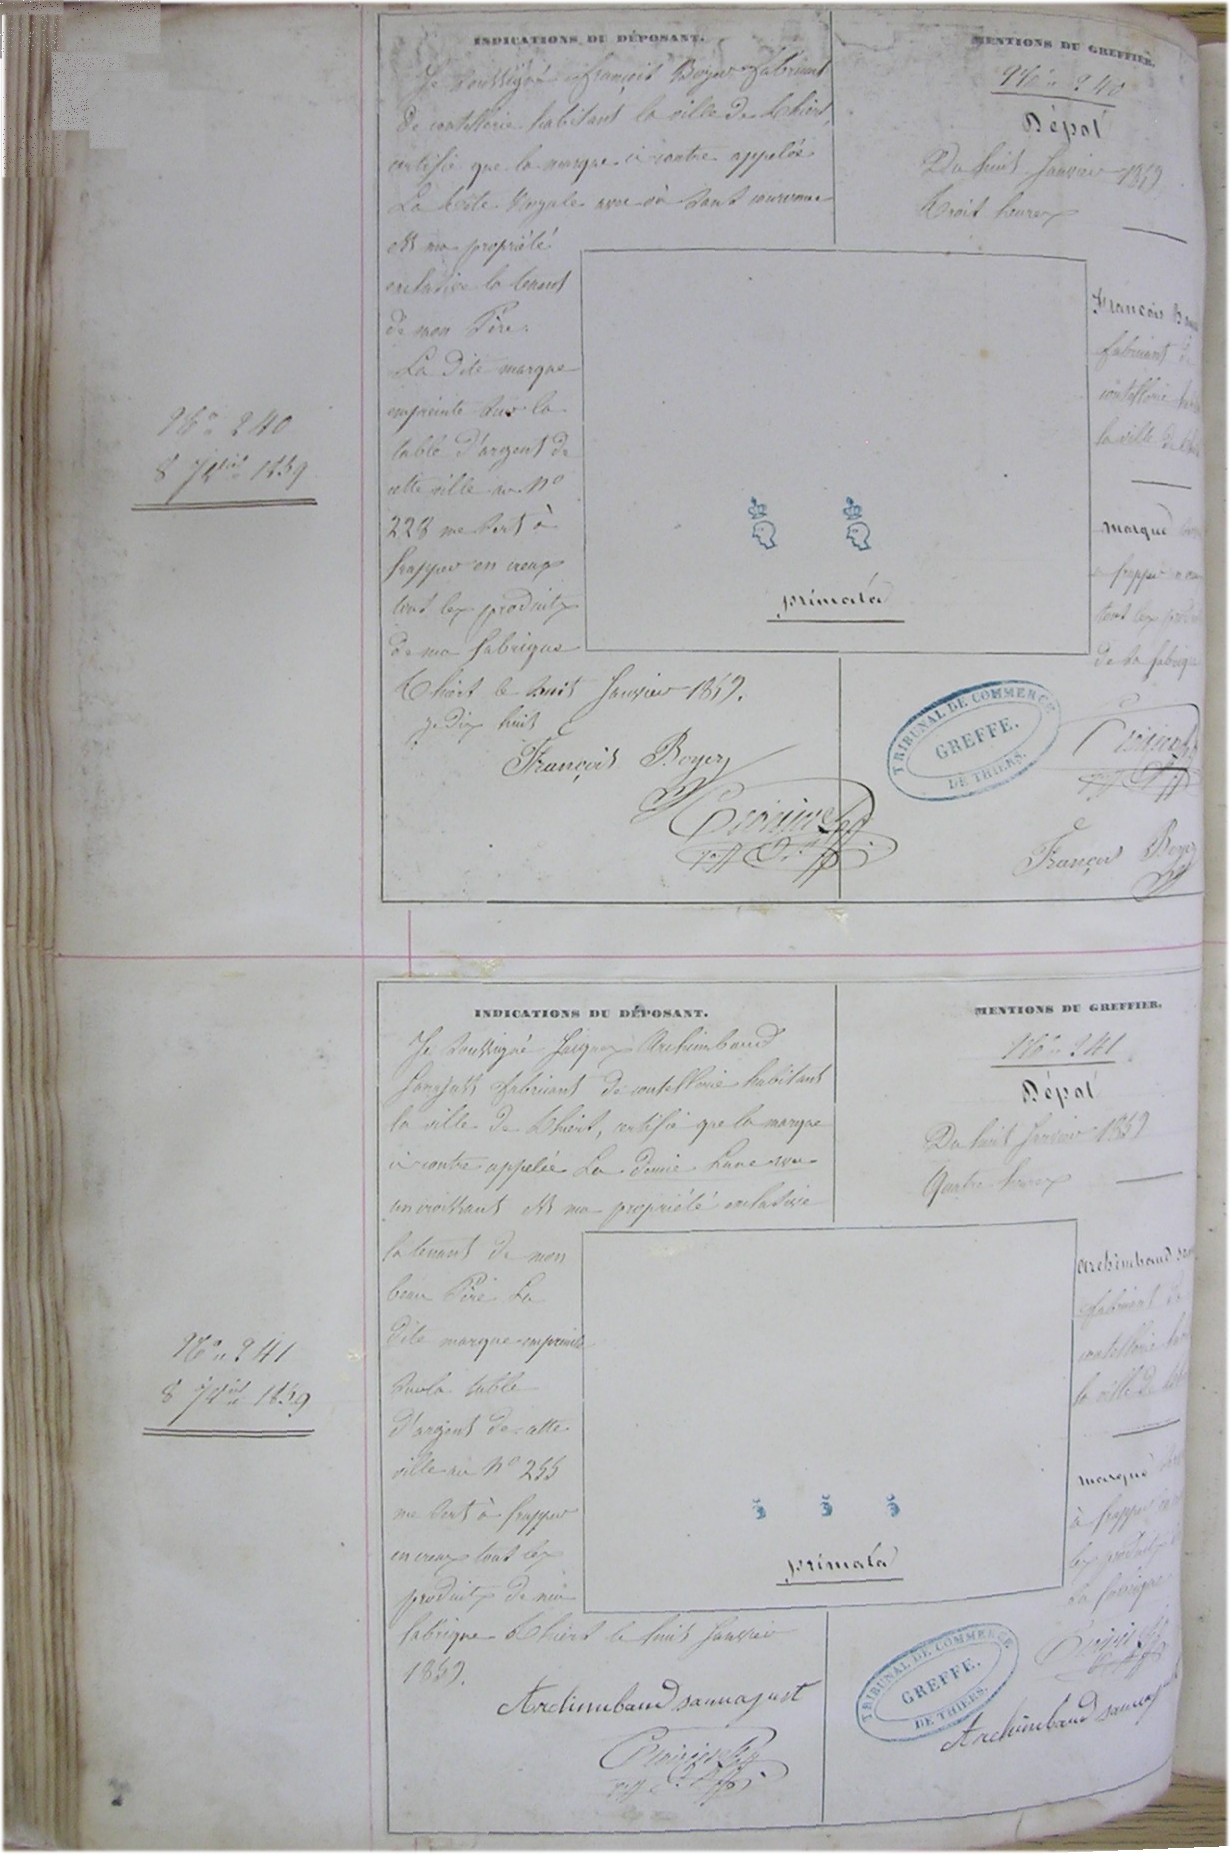 INDICATIONS DU DÉPOSANT.
Je soussigné François Boyer fabricant
de coutellerie habitant la ville de Thiers,
certifie que la marque ci contre appelée
La tête Royale avec sa couronne
est ma propriété
exclusive la tenant
de mon Père.
La dite marque
empreinte sur la
table d'argent de
cette ville au No
228 me sert à
frapper en creux
tout les produits
de ma fabrique
Thiers le huit Janvier 1859.
je dis huit
François Boyer
MENTIONS DU GREFFIER.
No 240
Dépôt
Du huit Janvier 1859
Trois heures
François
fabricant de
coutellerie
la ville de
marque
à frapper
tout les
de sa fabrique
primata
TRIBUNAL DE COMMERCE
GREFFE.
DE THIERS.
François Boyer
No 240
8 Jvier 1859
INDICATIONS DU DÉPOSANT.
Je soussigné Jacques Archimbaud
Sauvajust fabricant de coutellerie habitant
la ville de Thiers, certifie que la marque
ci contre appelée La demie Lune ou
un croissant est ma propriété exclusive
la tenant de mon
beau Père La
dite marque empreinte
sur la table
d'argent de cette
ville au No 255
me sert à frapper
en creux tout les
produits de ma
fabrique Thiers le huit Janvier
1859.
Archimbaud sauvajust
MENTIONS DU GREFFIER.
No 241
Dépôt
Du huit Janvier 1859
Quatre heures
Archimbaud
fabricant de
coutellerie
la ville de
marque
à frapper
les produits
sa fabrique
primata
TRIBUNAL DE COMMERCE
GREFFE.
DE THIERS.
Archimbaud
No 241
8 Jvier 1859